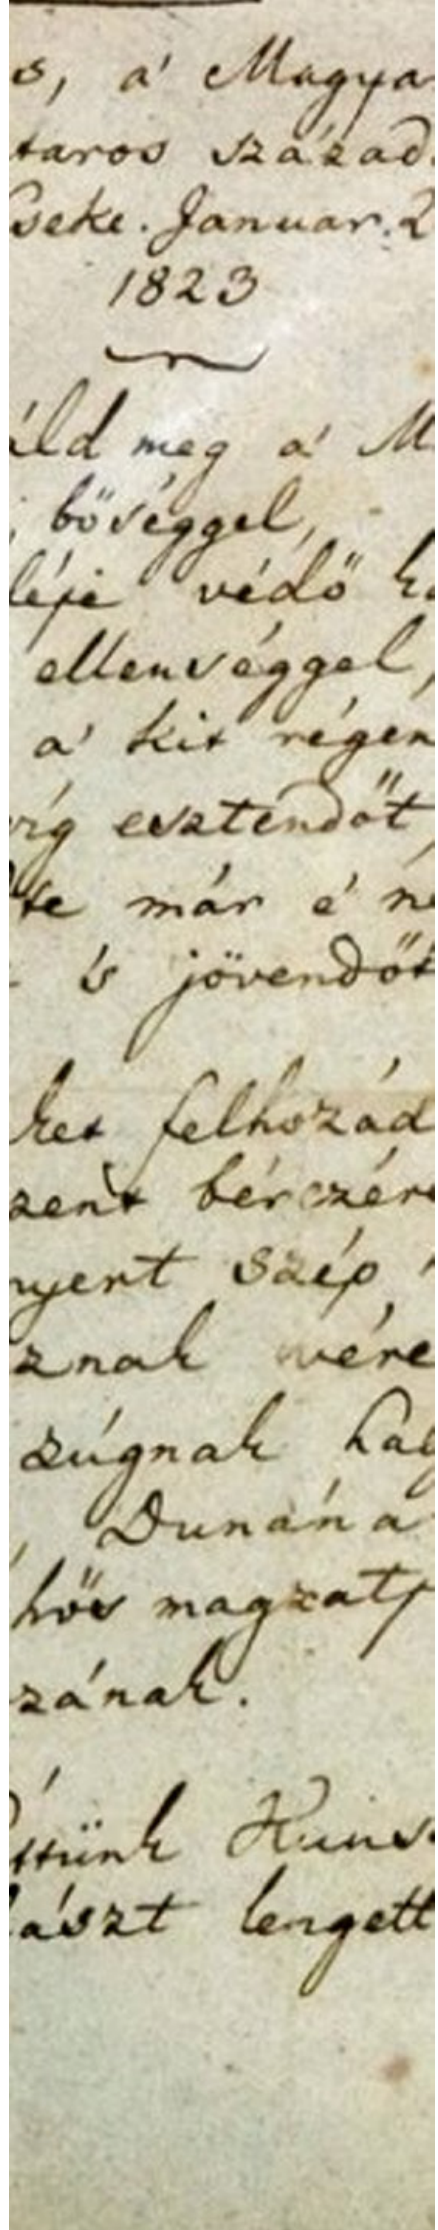 s, a' Magya
taros század.
seke. Januar. 2
1823
áld meg a' M
, bőséggel,
léje védő ka
ellenséggel,
a' kit régen
víg esztendőt,
te már é' né
is jövendőt
ket felhozád
zent bérczére
nyert szép
znak vére
zúgnak hab
, Dunána
hős magzatj
zának.
ttünk Kuns
lászt lengett